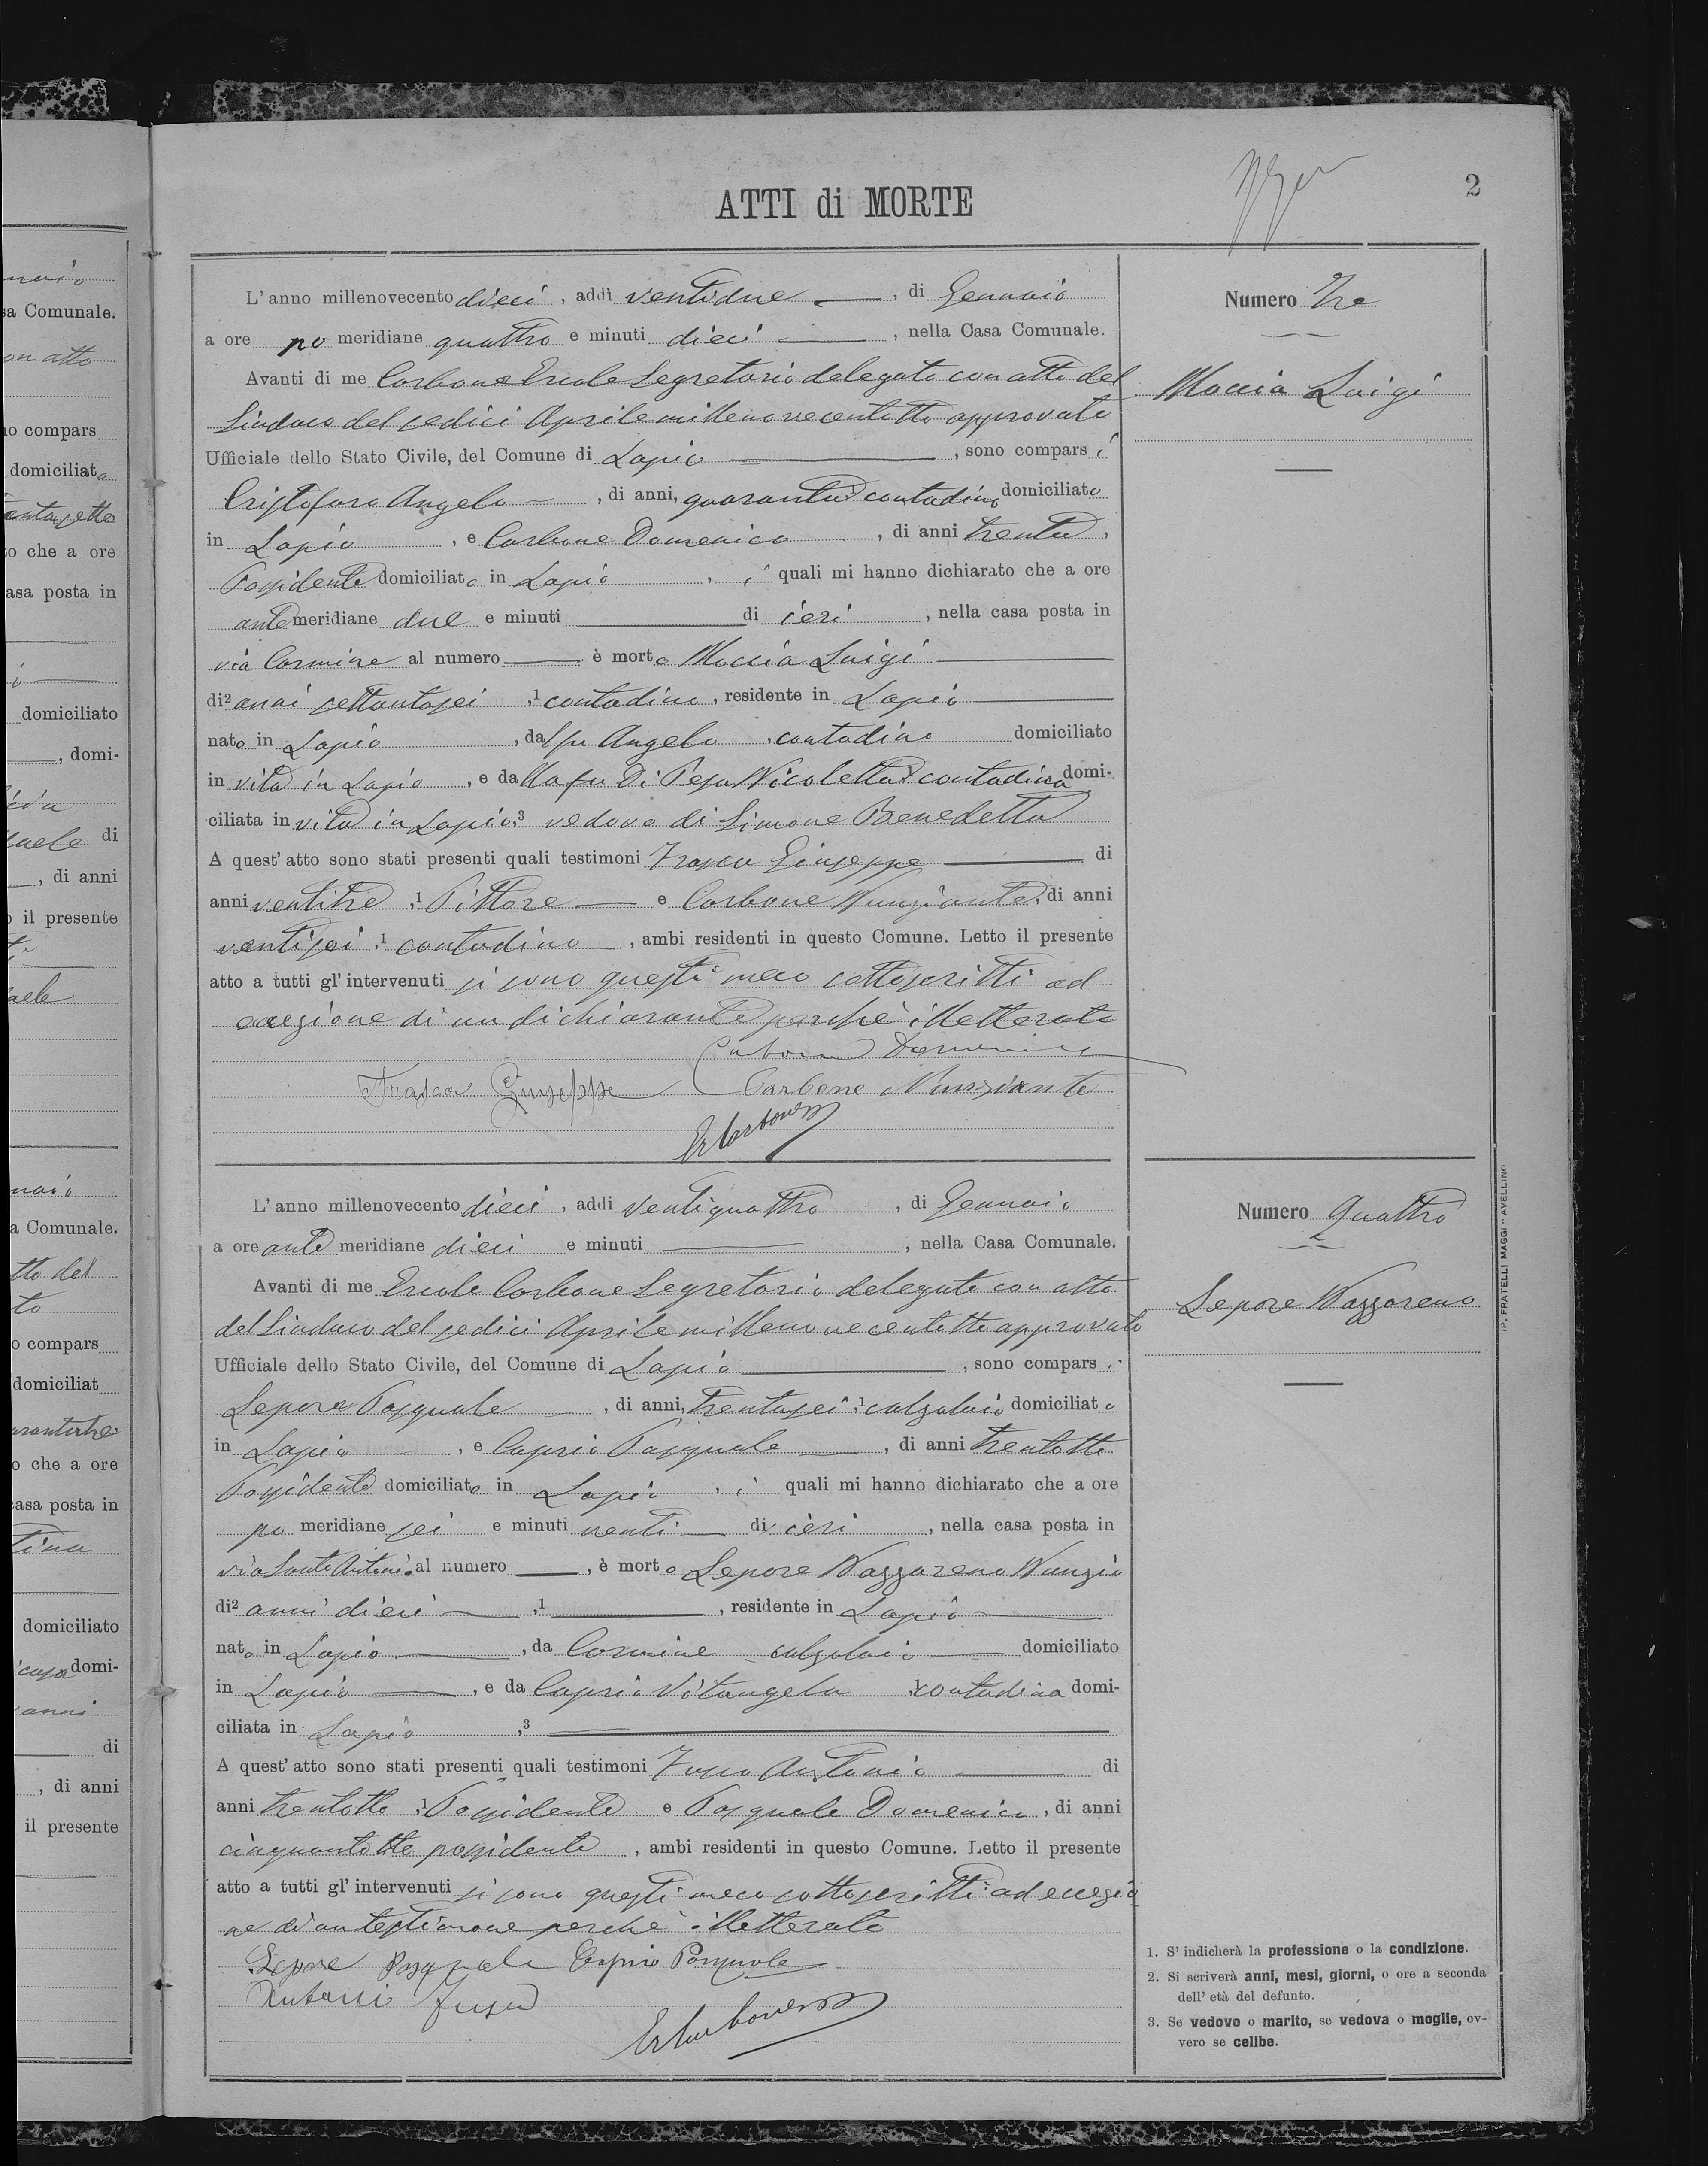 ATTI di MORTE
2
L'anno millenovecento dieci, addì ventidue, di Gennaio
a ore po meridiane quattro e minuti dieci, nella Casa Comunale.
Avanti di me Carbone Ercole Segretario delegato con atto del
Sindaco del sedici Aprile millenovecentotto approvato
Ufficiale dello Stato Civile, del Comune di Lapio, sono comparsi
Cristofaro Angelo, di anni, quaranta contadino domiciliato
in Lapio, e Carbone Domenico, di anni trenta,
Possidente domiciliato in Lapio, i quali mi hanno dichiarato che a ore
ante meridiane due e minuti di ieri, nella casa posta in
via Carmine al numero è morto Moccia Luigi
di2 anni settantasei,1 contadino, residente in Lapio
nato in Lapio, dal fu Angelo, contadino domiciliato
in vita in Lapio, e dalla fu Di Peso Nicoletta contadina domi-
ciliata in vita in Lapio,3 vedovo di Simone Benedetta
A quest'atto sono stati presenti quali testimoni Frasca Giuseppe di
anni ventitre,1 Pittore e Carbone Nunziante, di anni
ventisei,1 contadino, ambi residenti in questo Comune. Letto il presente
atto a tutti gl'intervenuti si sono questi meco sottoscritti ad
eccezione di un dichiarante perchè illetterato
Carbone Domenico
Frasca Giuseppe Carbone Nunziante
ErCarbone
Numero Tre
Moccia Luigi
L'anno millenovecento dieci, addì ventiquattro, di Gennaio
a ore ante meridiane dieci e minuti, nella Casa Comunale.
Avanti di me Ercole Carbone Segretario delegato con atto
del Sindaco del sedici Aprile millenovecentotto approvato
Ufficiale dello Stato Civile, del Comune di Lapio, sono comparsi
Lepore Pasquale, di anni, trentasei,1 calzolaio domiciliato
in Lapio, e Caprio Pasquale, di anni trentotto
Possidente domiciliato in Lapio, i quali mi hanno dichiarato che a ore
po meridiane sei e minuti venti di ieri, nella casa posta in
via Santo Antonio al numero, è morto Lepore Nazzareno Nunzio
di2 anni dieci,1, residente in Lapio
nato in Lapio, da Carmine calzolaio domiciliato
in Lapio, e da Caprio Vitangela, contadina domi-
ciliata in Lapio,3
A quest'atto sono stati presenti quali testimoni Fusco Antonio di
anni trentotto,1 Possidente e Pasquale Domenico, di anni
cinquantotto possidente, ambi residenti in questo Comune. Letto il presente
atto a tutti gl'intervenuti si sono questi meco sottoscritti ad eccezio
ne di un testimone perchè illetterato
Lepore Pasquale Caprio Pasquale
Antonio Fusco
ErCarbone
Numero Quattro
Lepore Nazzareno
1. S'indicherà la professione o la condizione.
2. Si scriverà anni, mesi, giorni, o ore a seconda
dell'età del defunto.
3. Se vedovo o marito, se vedova o moglie, ov-
vero se celibe.
TIP. FRATELLI MAGGI - AVELLINO